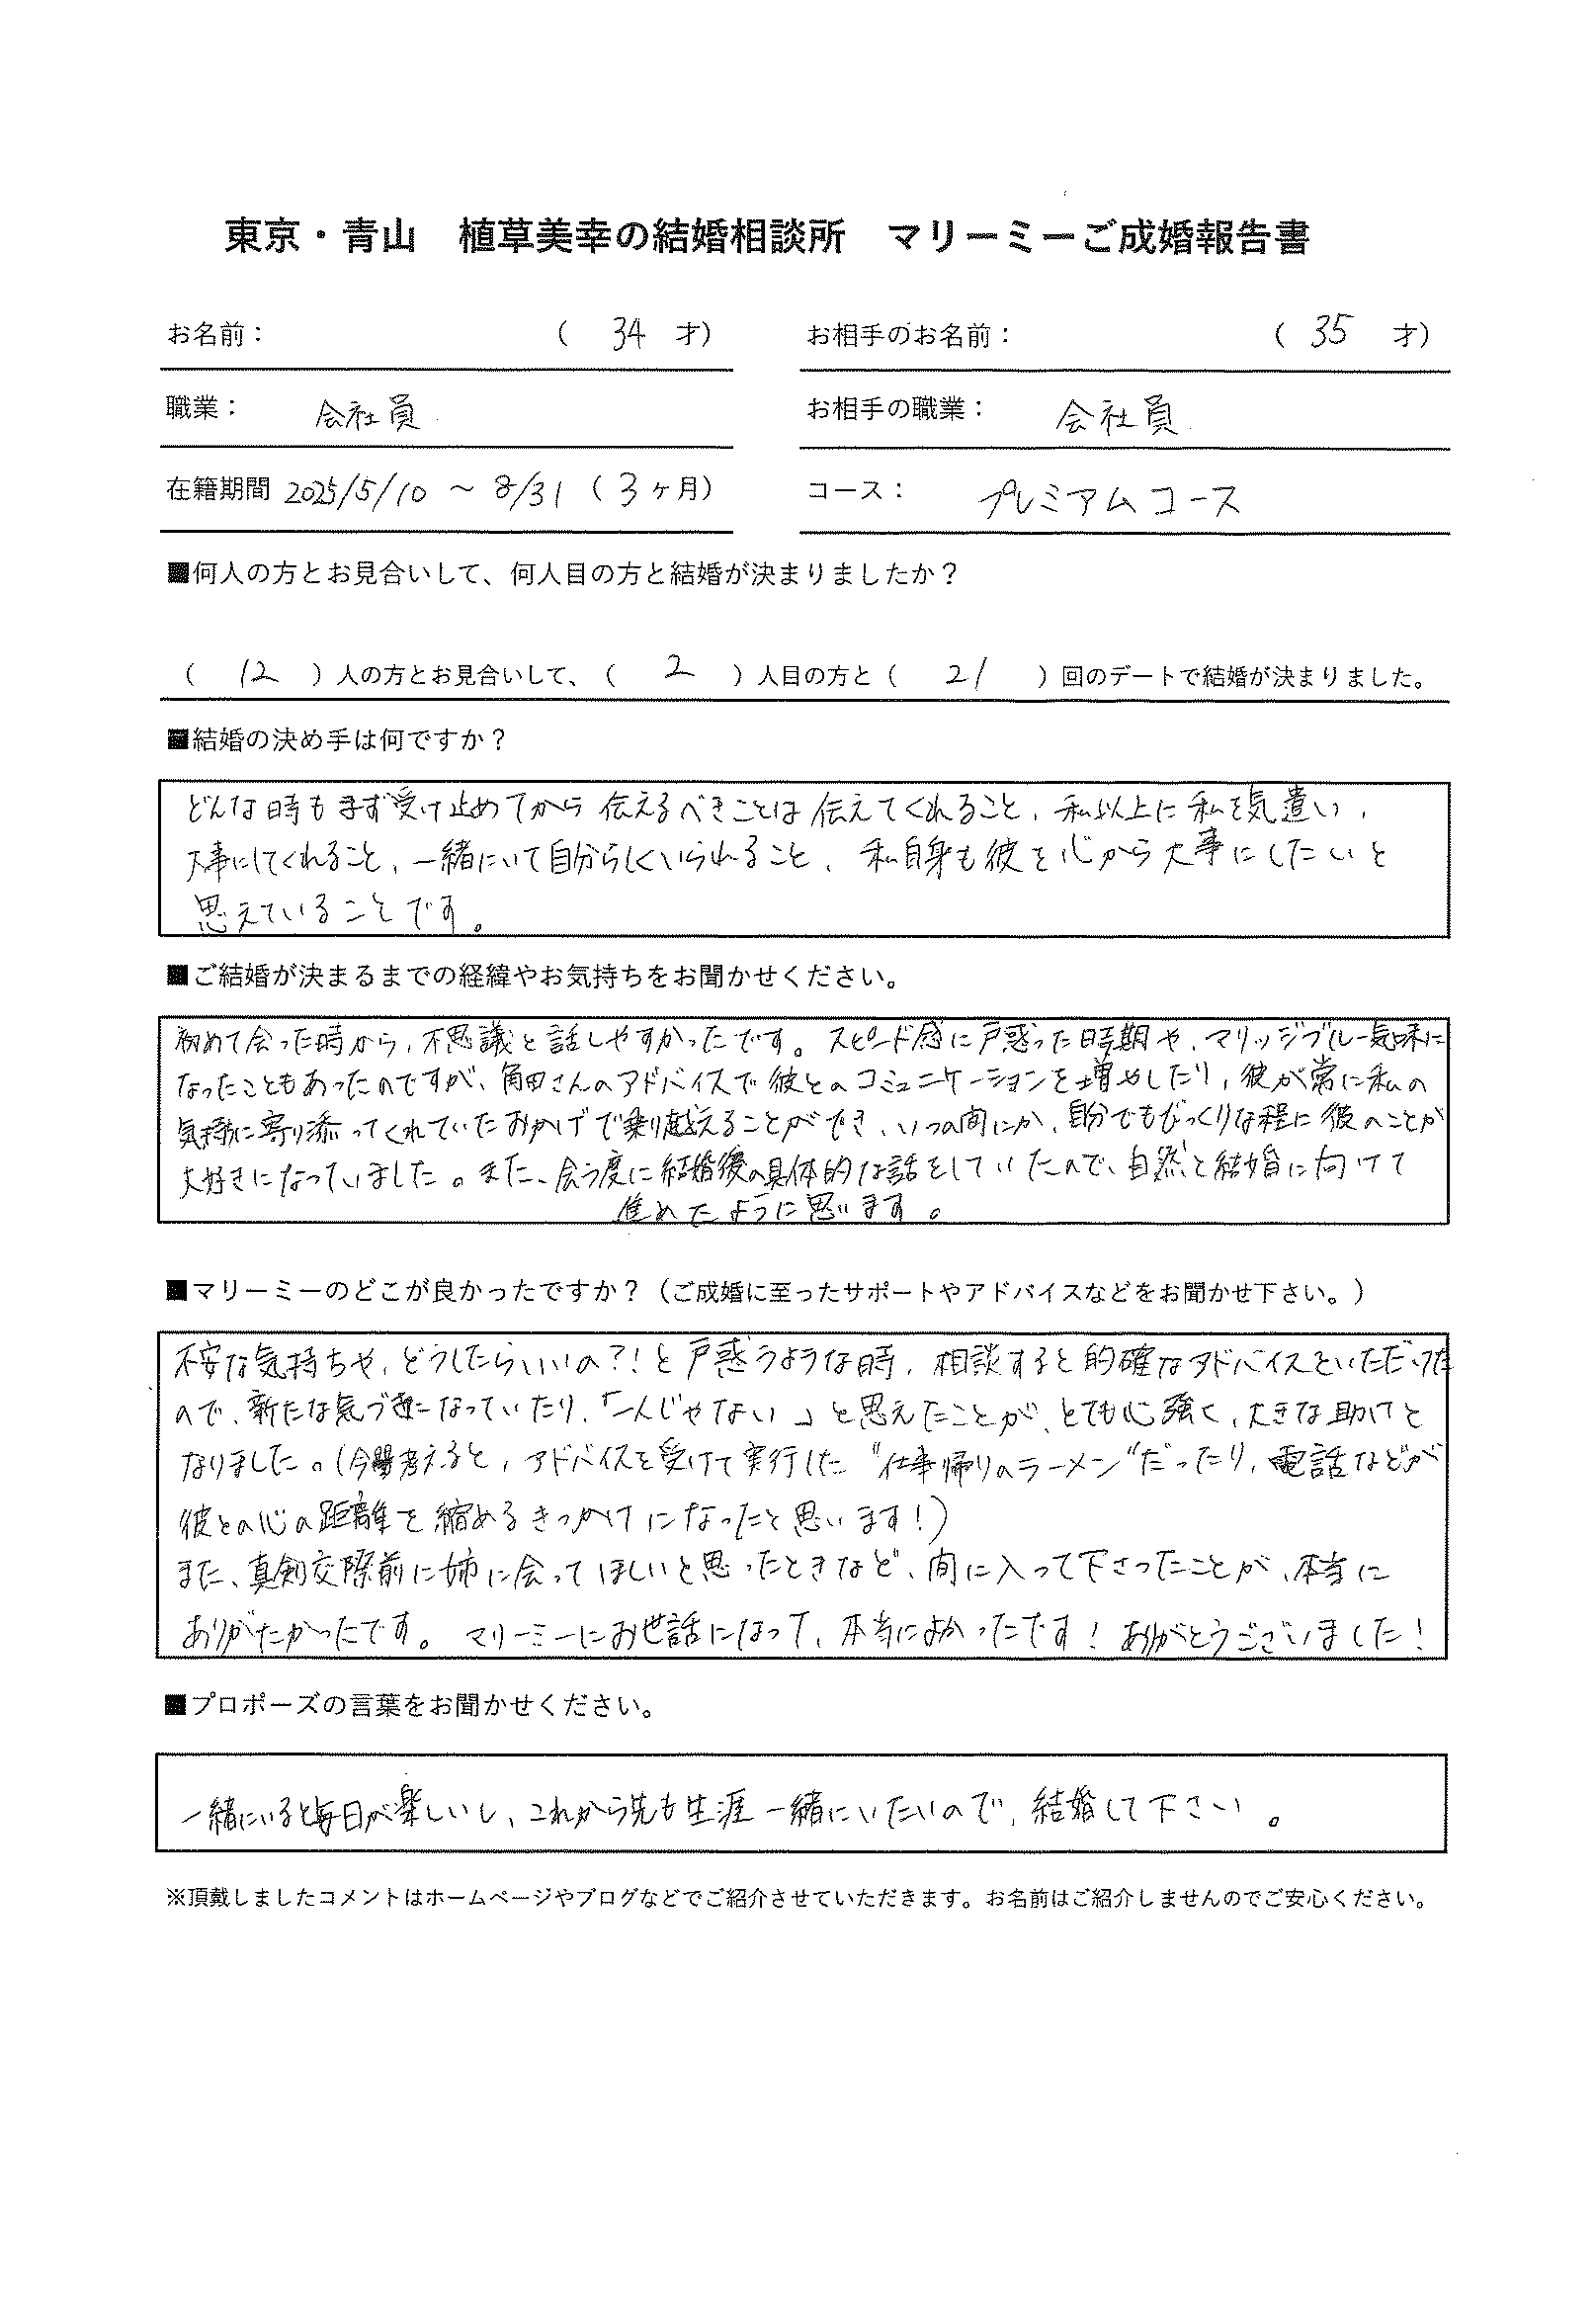 東京・青山　植草美幸の結婚相談所　マリーミーご成婚報告書
お名前：　（　34　才）　お相手のお名前：　（　35　才）
職業：　会社員　お相手の職業：　会社員
在籍期間　2025/5/10 ～ 8/31（3ヶ月）　コース：　プレミアムコース
■何人の方とお見合いして、何人目の方と結婚が決まりましたか？
（　12　）人の方とお見合いして、（　2　）人目の方と（　21　）回のデートで結婚が決まりました。
■結婚の決め手は何ですか？
どんな時もまず受け止めてから伝えるべきことは伝えてくれること、私以上に私を気遣い、
大事にしてくれること、一緒にいて自分らしくいられること、私自身も彼を心から大事にしたいと
思えていることです。
■ご結婚が決まるまでの経緯やお気持ちをお聞かせください。
初めて会った時から、不思議と話しやすかったです。スピード感に戸惑った時期や、マリッジブルー気味に
なったこともあったのですが、角田さんのアドバイスで彼とのコミュニケーションを増やしたり、彼が常に私の
気持に寄り添ってくれていたおかげで乗り越えることができ、いつの間にか、自分でもびっくりな程に彼のことが
大好きになっていました。また、会う度に結婚後の具体的な話をしていたので、自然と結婚に向けて
進めたように思います。
■マリーミーのどこが良かったですか？（ご成婚に至ったサポートやアドバイスなどをお聞かせ下さい。）
不安な気持ちや、どうしたらいいの？！と戸惑うような時、相談すると的確なアドバイスをいただいた
ので、新たな気づきになっていたり、「一人じゃない」と思えたことが、とても心強く、大きな助けと
なりました。（今考えると、アドバイスを受けて実行した"仕事帰りのラーメン"だったり、電話などが
彼との心の距離を縮めるきっかけになったと思います！）
また、真剣交際前に姉に会ってほしいと思ったときなど、間に入って下さったことが、本当に
ありがたかったです。マリーミーにお世話になって、本当によかったです！ありがとうございました！
■プロポーズの言葉をお聞かせください。
一緒にいると毎日が楽しいし、これから先も生涯一緒にいたいので、結婚して下さい。
※頂戴しましたコメントはホームページやブログなどでご紹介させていただきます。お名前はご紹介しませんのでご安心ください。